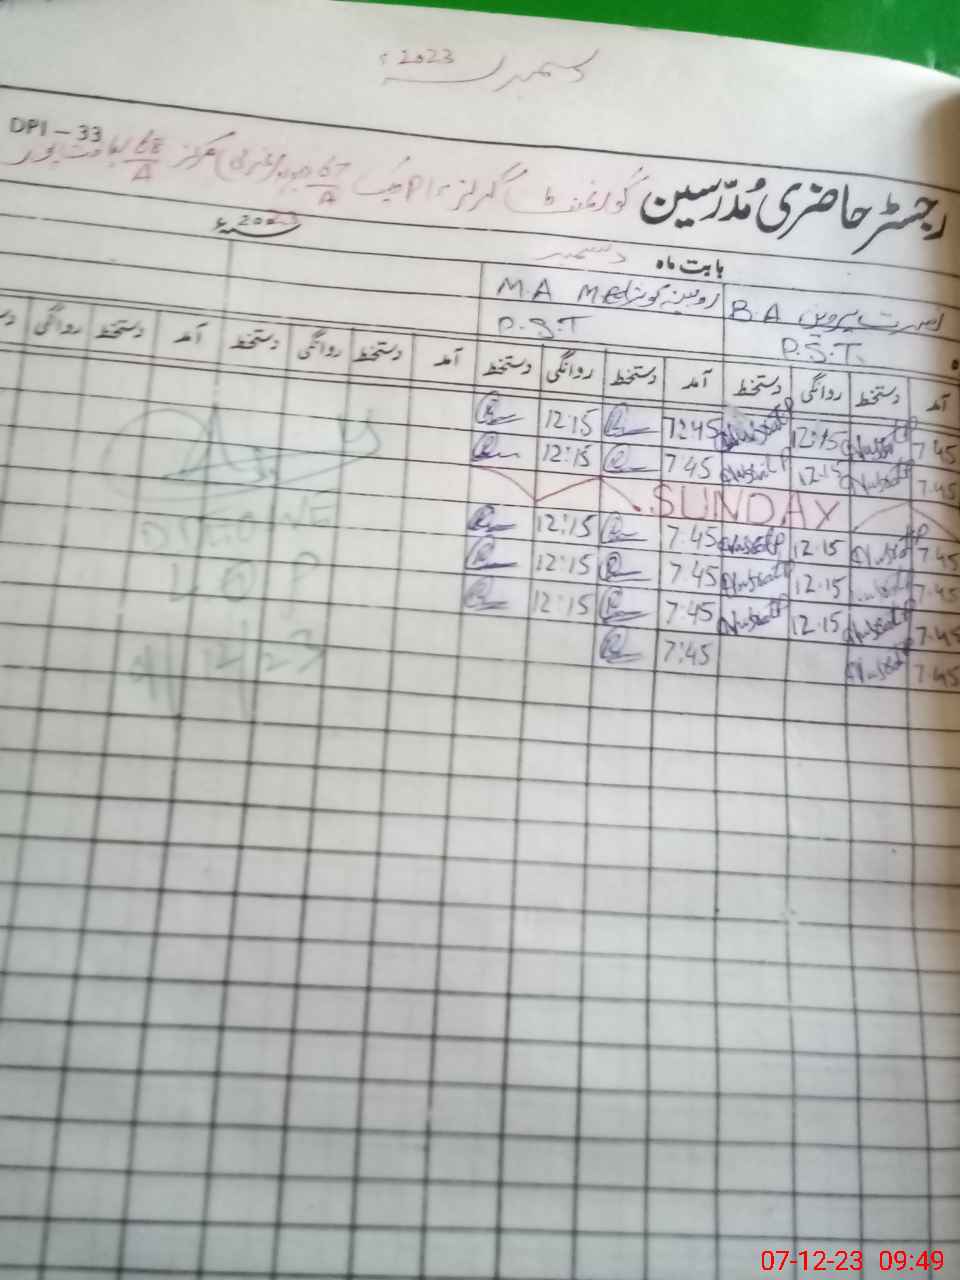 دسمبر 2023ء
DPI - 33
رجسٹر حاضری مُدرّسین گورنمنٹ گرلز چک 67/A مرکز 68/A
بابت ماہ دسمبر 2023ء
نصرت پروین B.A روبینہ کوثر M.A M.Ed
P.S.T. P.S.T
آمد دستخط روانگی دستخط آمد دستخط روانگی دستخط آمد دستخط روانگی دستخط آمد دستخط روانگی
7:45 Nusrat P 12:15 Nusrat P 7:45 12:15
7:45 Nusrat P 12:15 Nusrat P 7:45 12:15
SUNDAY
7:45 Nusrat P 12:15 Nusrat P 7:45 12:15
7:45 Nusrat P 12:15 Nusrat P 7:45 12:15
7:45 Nusrat P 12:15 Nusrat P 7:45 12:15
7:45 Nusrat P 7:45
12/23
07-12-23 09:49